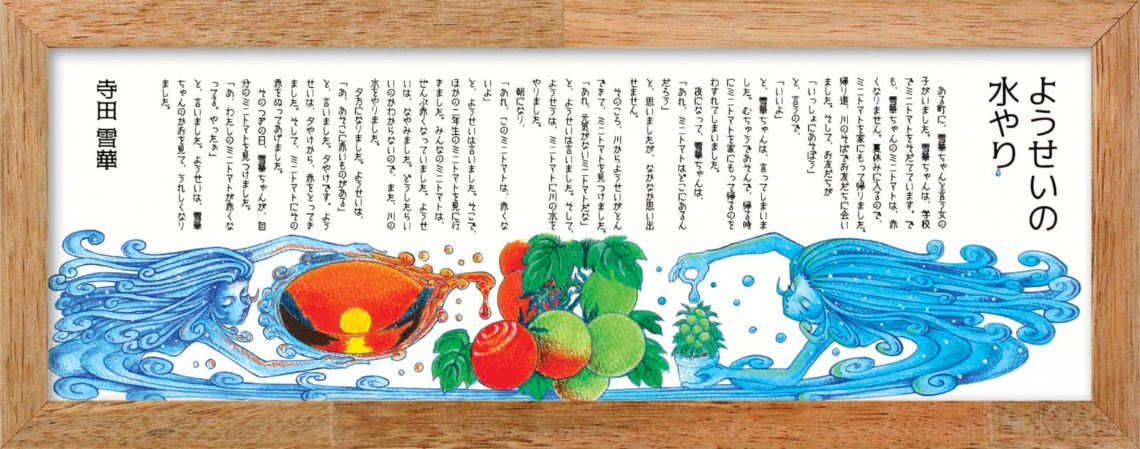 ようせいの
水やり
ある町に、雪華ちゃんと言う女の
子がいました。雪華ちゃんは、学校
でミニトマトをそだてています。で
も、雪華ちゃんのミニトマトは、赤
くなりません。夏休みに入るので、
ミニトマトを家にもって帰りました。
帰り道、川のそばでお友だちに会い
ました。そして、お友だちが
「いっしょにあそぼう」
と、言うので、
「いいよ」
と、雪華ちゃんは、言ってしまいま
した。むちゅうであそんで、帰る時
にミニトマトを家にもって帰るのを
わすれてしまいました。
夜になって、雪華ちゃんは、
「あれ、ミニトマトはどこにあるん
だろう」
と、思いましたが、なかなか思い出
せません。
そのころ、川からようせいがとん
できて、ミニトマトを見つけました。
「あれ、元気がないミニトマトだな」
と、ようせいは言いました。そして、
ようせいは、ミニトマトに川の水を
やりました。
朝になり、
「あれ、このミニトマトは、赤くな
いよ」
と、ようせいは言いました。そこで、
ほかの二年生のミニトマトを見に行
きました。みんなのミニトマトは、
ぜんぶ赤くなっていました。ようせ
いは、なやみました。どうしたらい
いのかわからないので、また、川の
水をやりました。
夕方になりました。ようせいは、
「あ、あそこに赤いものがある」
と、言いました。夕やけです。よう
せいは、夕やけから、赤をとってき
ました。そして、ミニトマトにその
赤をぬってあげました。
そのつぎの日、雪華ちゃんが、自
分のミニトマトを見つけました。
「あ、わたしのミニトマトが赤くな
ってる。やったぁ」
と、言いました。ようせいは、雪華
ちゃんのかおを見て、うれしくなり
ました。
寺田 雪華